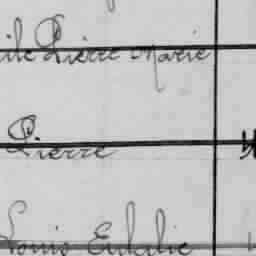 ile Pierre Marie
Pierre
Louis Eulalie